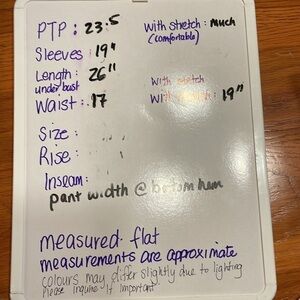 PTP : 23.5
with stretch : much
(comfortable)
Sleeves : 19"
Length : 26"
under bust
with stretch
Waist : 17
With stretch : 19"
Size :
Rise :
Inseam :
pant width @ bottom hem
measured flat
measurements are approximate
colours may differ slightly due to lighting
Please inquire if important